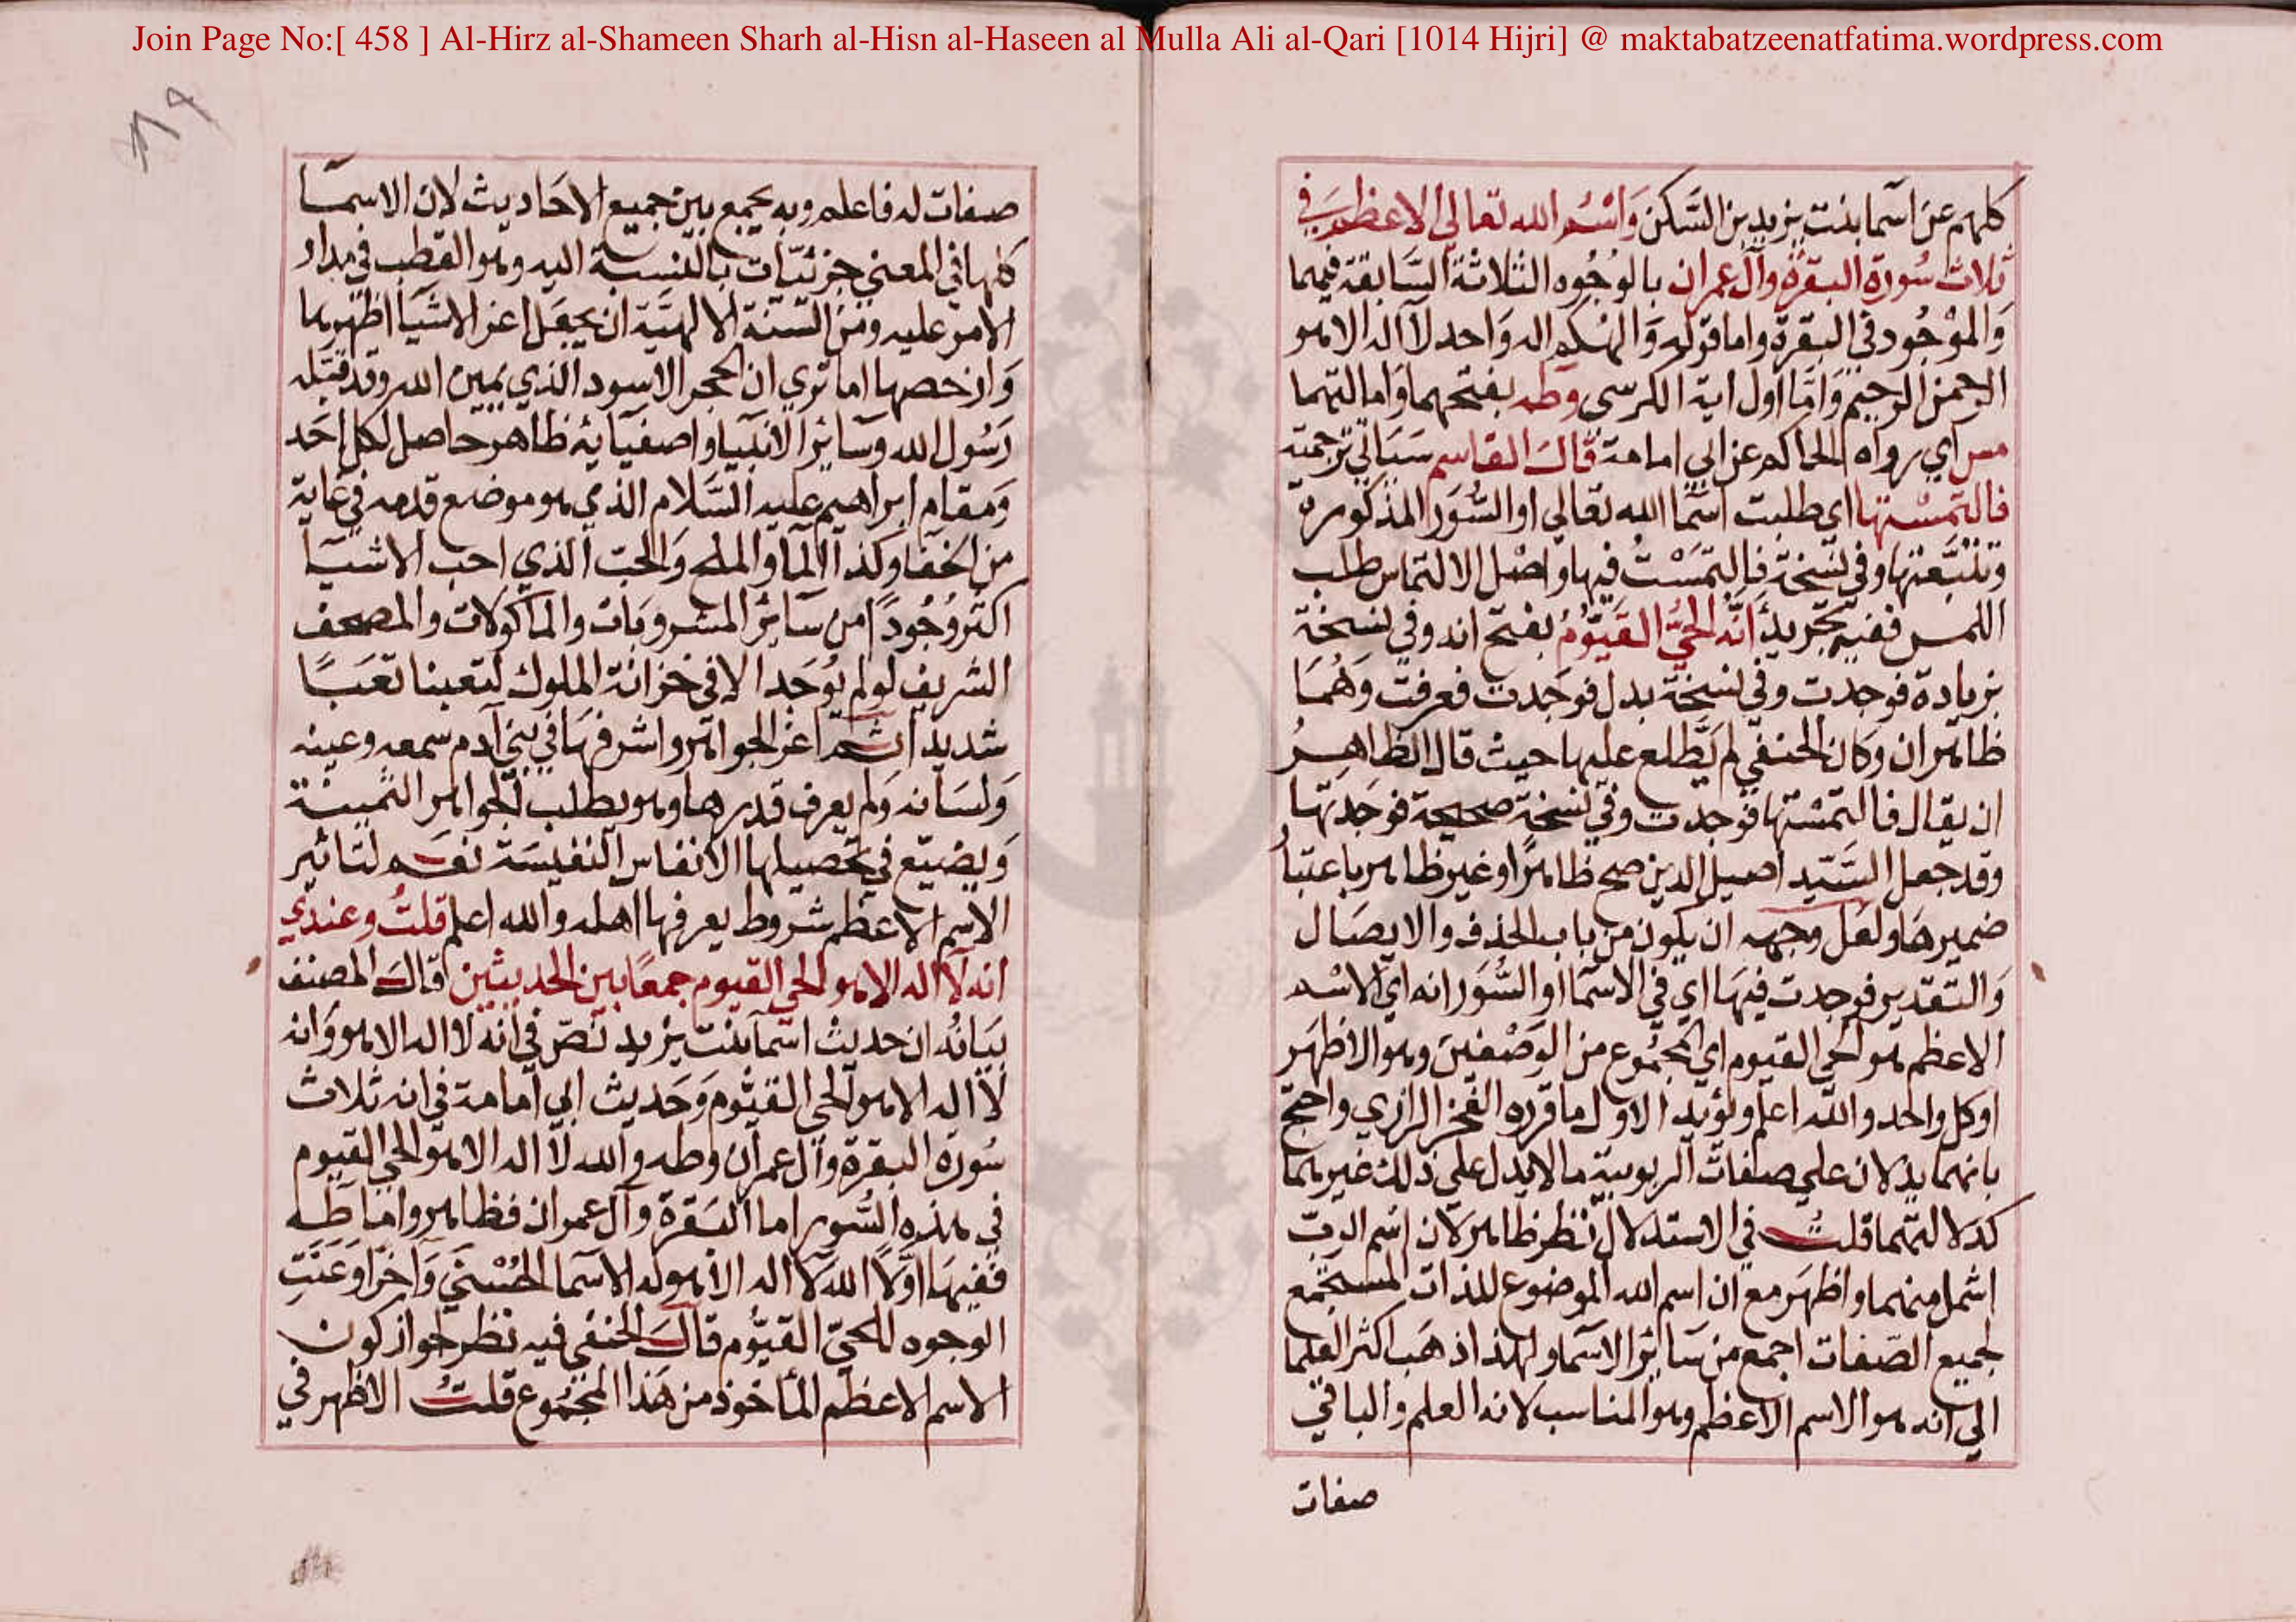 Join Page No:[ 458 ] Al-Hirz al-Shameen Sharh al-Hisn al-Haseen al Mulla Ali al-Qari [1014 Hijri] @ maktabatzeenatfatima.wordpress.com
كلهم عن اسما بنت يزيد بن السكن واسم الله تعالي الاعظم في
ثلاث سورة البقرة وآل عمران بالوجوه الثلاثة السابقة فيهما
والموجود في البقرة واما قوله والهكم اله واحد لا اله الا هو
الرحمن الرحيم واما اول اية الكرسي وطه بفتحهما وامالتهما
مس اي رواه الحاكم عن ابي امامة قال القاسم سياتي ترجمته
فالتمستها اي طلبت اسما الله تعالي او السور المذكورة
وتتبعتها وفي نسخة فالتمست فيها واصل الالتماس طلب
اللمس ففيه تجريد أنه الحي القيوم بفتح انه وفي نسخة
بزيادة فوجدت وفي نسخة بدل فوجدت فعرفت وهما
ظاهران وكان الحنفي لم يطلع عليها حيث قال الظاهر
ان يقال فالتمستها فوجدت وفي نسخة صحيحة فوجدتها
وقد جعل السيد اصيل الدين صح ظاهرا وغير ظاهر باعتبار
ضميرها ولعل وجهه ان يكون من باب الحذف والايصال
والتقدير فوجدت فيها اي في الاسما او السور انه اي الاسم
الاعظم هو الحي القيوم اي المجموع من الوصفين وهو الاظهر
او كل واحد والله اعلم ويؤيد الاول ما قرره الفخر الرازي واحتج
بانهما يدلان علي صفات الربوبية ما لا يدل علي ذلك غيرهما
كدلالتهما قلت في الاستدلال نظر ظاهر لان اسم الرب
اشمل منهما واظهر مع ان اسم الله الموضوع للذات المستجمع
لجميع الصفات اجمع من سائر الاسما ولهذا ذهب اكثر العلما
الي انه هو الاسم الاعظم وهو المناسب لانه العلم والباقي
صفات
صفات له فاعلم وبه يجمع بين جميع الاحاديث لان الاسما
كلها في المعني جزئيات بالنسبة اليه وهو القطب في مدار
الامر عليه ومن السنة الالهية ان يجعل اعز الاشيا اظهرها
وارخصها اما تري ان الحجر الاسود الذي يمين الله وقد قبله
رسول الله وسائر الانبيا واصفيائه ظاهر حاصل لكل احد
ومقام ابراهيم عليه السلام الذي هو موضع قدمه في غاية
من الخفا وكذا الما والملح والحب الذي احب الاشيا
اكثر وجودا من سائر المشروبات والماكولات والمصحف
الشريف لو لم يوجد الا في خزانة الملوك لتعبنا تعبا
شديدا ثم اعز الجواهر واشرفها في بني آدم سمعه وعينه
ولسانه ولم يعرف قدرها وهو يطلب الجواهر الثمينة
ويضيع في تحصيلها الانفاس النفيسة نعم لتاثير
الاسم الاعظم شروط يعرفها اهله والله اعلم قلت وعندي
انه لا اله الا هو الحي القيوم جمعا بين الحديثين قال المصنف
بيانه ان حديث اسما بنت يزيد نص في انه لا اله الا هو وانه
لا اله الا هو الحي القيوم وحديث ابي امامة في انه ثلاث
سورة البقرة وآل عمران وطه والله لا اله الا هو الحي القيوم
في هذه السور اما البقرة وآل عمران فظاهر واما طه
ففيها اولا الله لا اله الا هو له الاسما الحسني وآخرا وعنت
الوجوه للحي القيوم قال الحنفي فيه نظر لجواز كون
الاسم الاعظم المأخوذ من هذا المجموع قلت الاظهر في